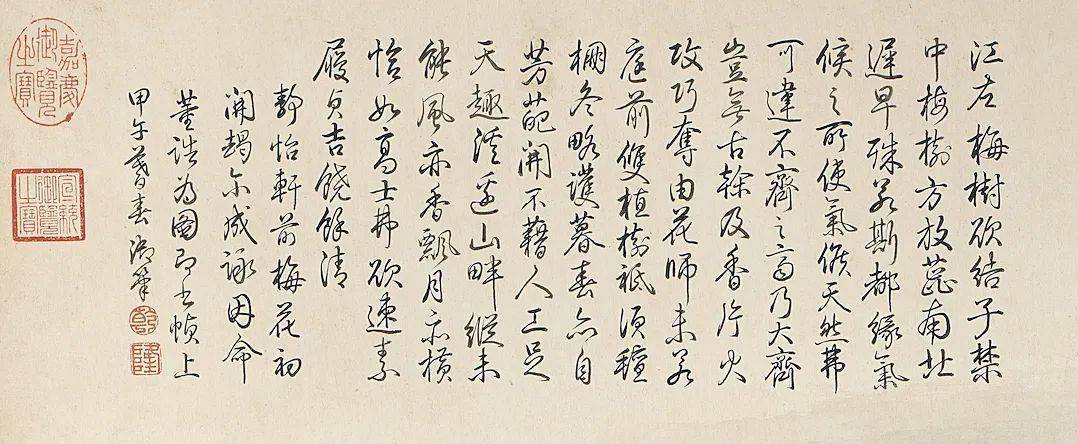 江左梅樹欲結子禁
中梅樹方放蕊南北
遲早殊若斯都緣氣
候之所使氣候天然弗
可違不齊之齊乃大齊
豈無古榦及香片火
攻巧奪由花師未若
庭前雙植樹祗須氈
棚冬略護暮春亦自
芳葩開不藉人工足
天趣溪邊山畔縱未
能風亦香飄月亦橫
恰如高士弗欲速素
履貞吉饒餘清
靜怡軒前梅花初
開尔成詠因命
董誥為圖即書幀上
甲午暮春御筆
乾
隆
嘉慶御覽之寶
宣統御覽之寶